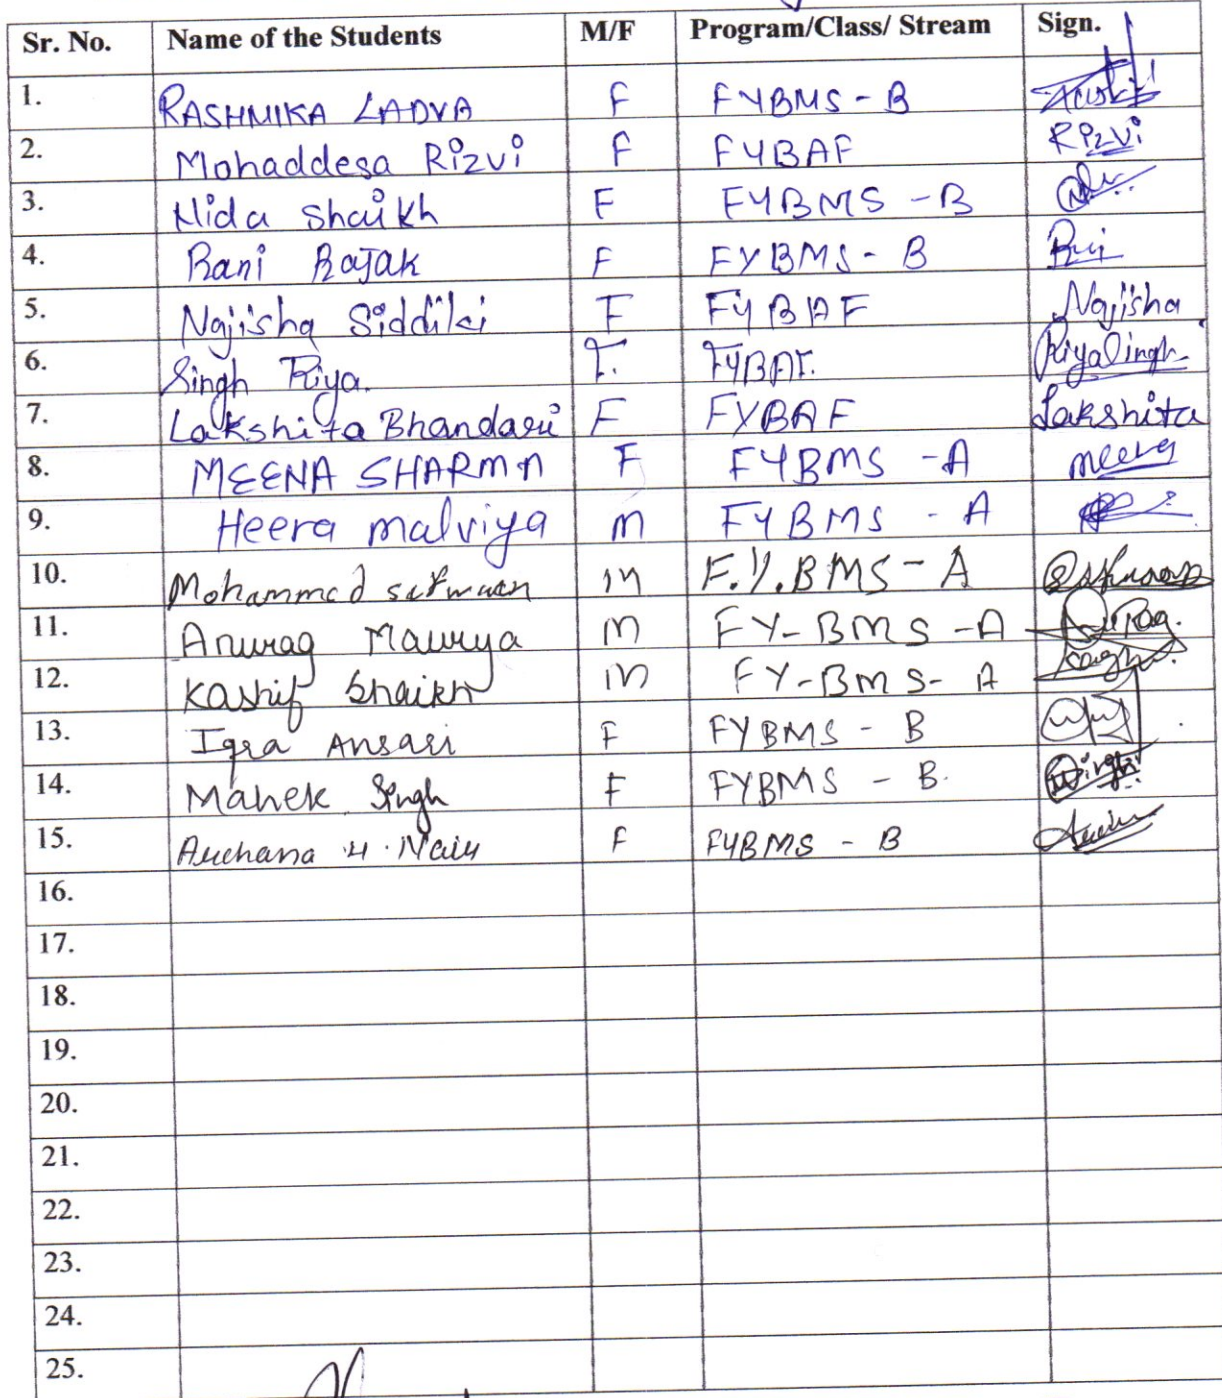 Sr. No. Name of the Students M/F Program/Class/ Stream Sign.
1. RASHMIKA LADVA F FYBMS - B
2. Mohaddesa Rizvi F FYBAF Rizvi
3. Nida Shaikh F FYBMS - B
4. Rani Rajak F FYBMS - B
5. Najisha Siddiki F FYBAF Najisha
6. Singh Riya. F. FYBAF. Riya Singh
7. Lakshita Bhandari F FYBAF Lakshita
8. MEENA SHARMA F FYBMS - A meena
9. Heera malviya m FYBMS - A
10. Mohammad m F.Y.BMS - A
11. Anurag Maurya m FY-BMS -A
12. Kashif Shaikh m FY-BMS- A
13. Iqra Ansari F FYBMS - B
14. Mahek Singh F FYBMS - B.
15. Archana H. Nair F FYBMS - B
16.
17.
18.
19.
20.
21.
22.
23.
24.
25.